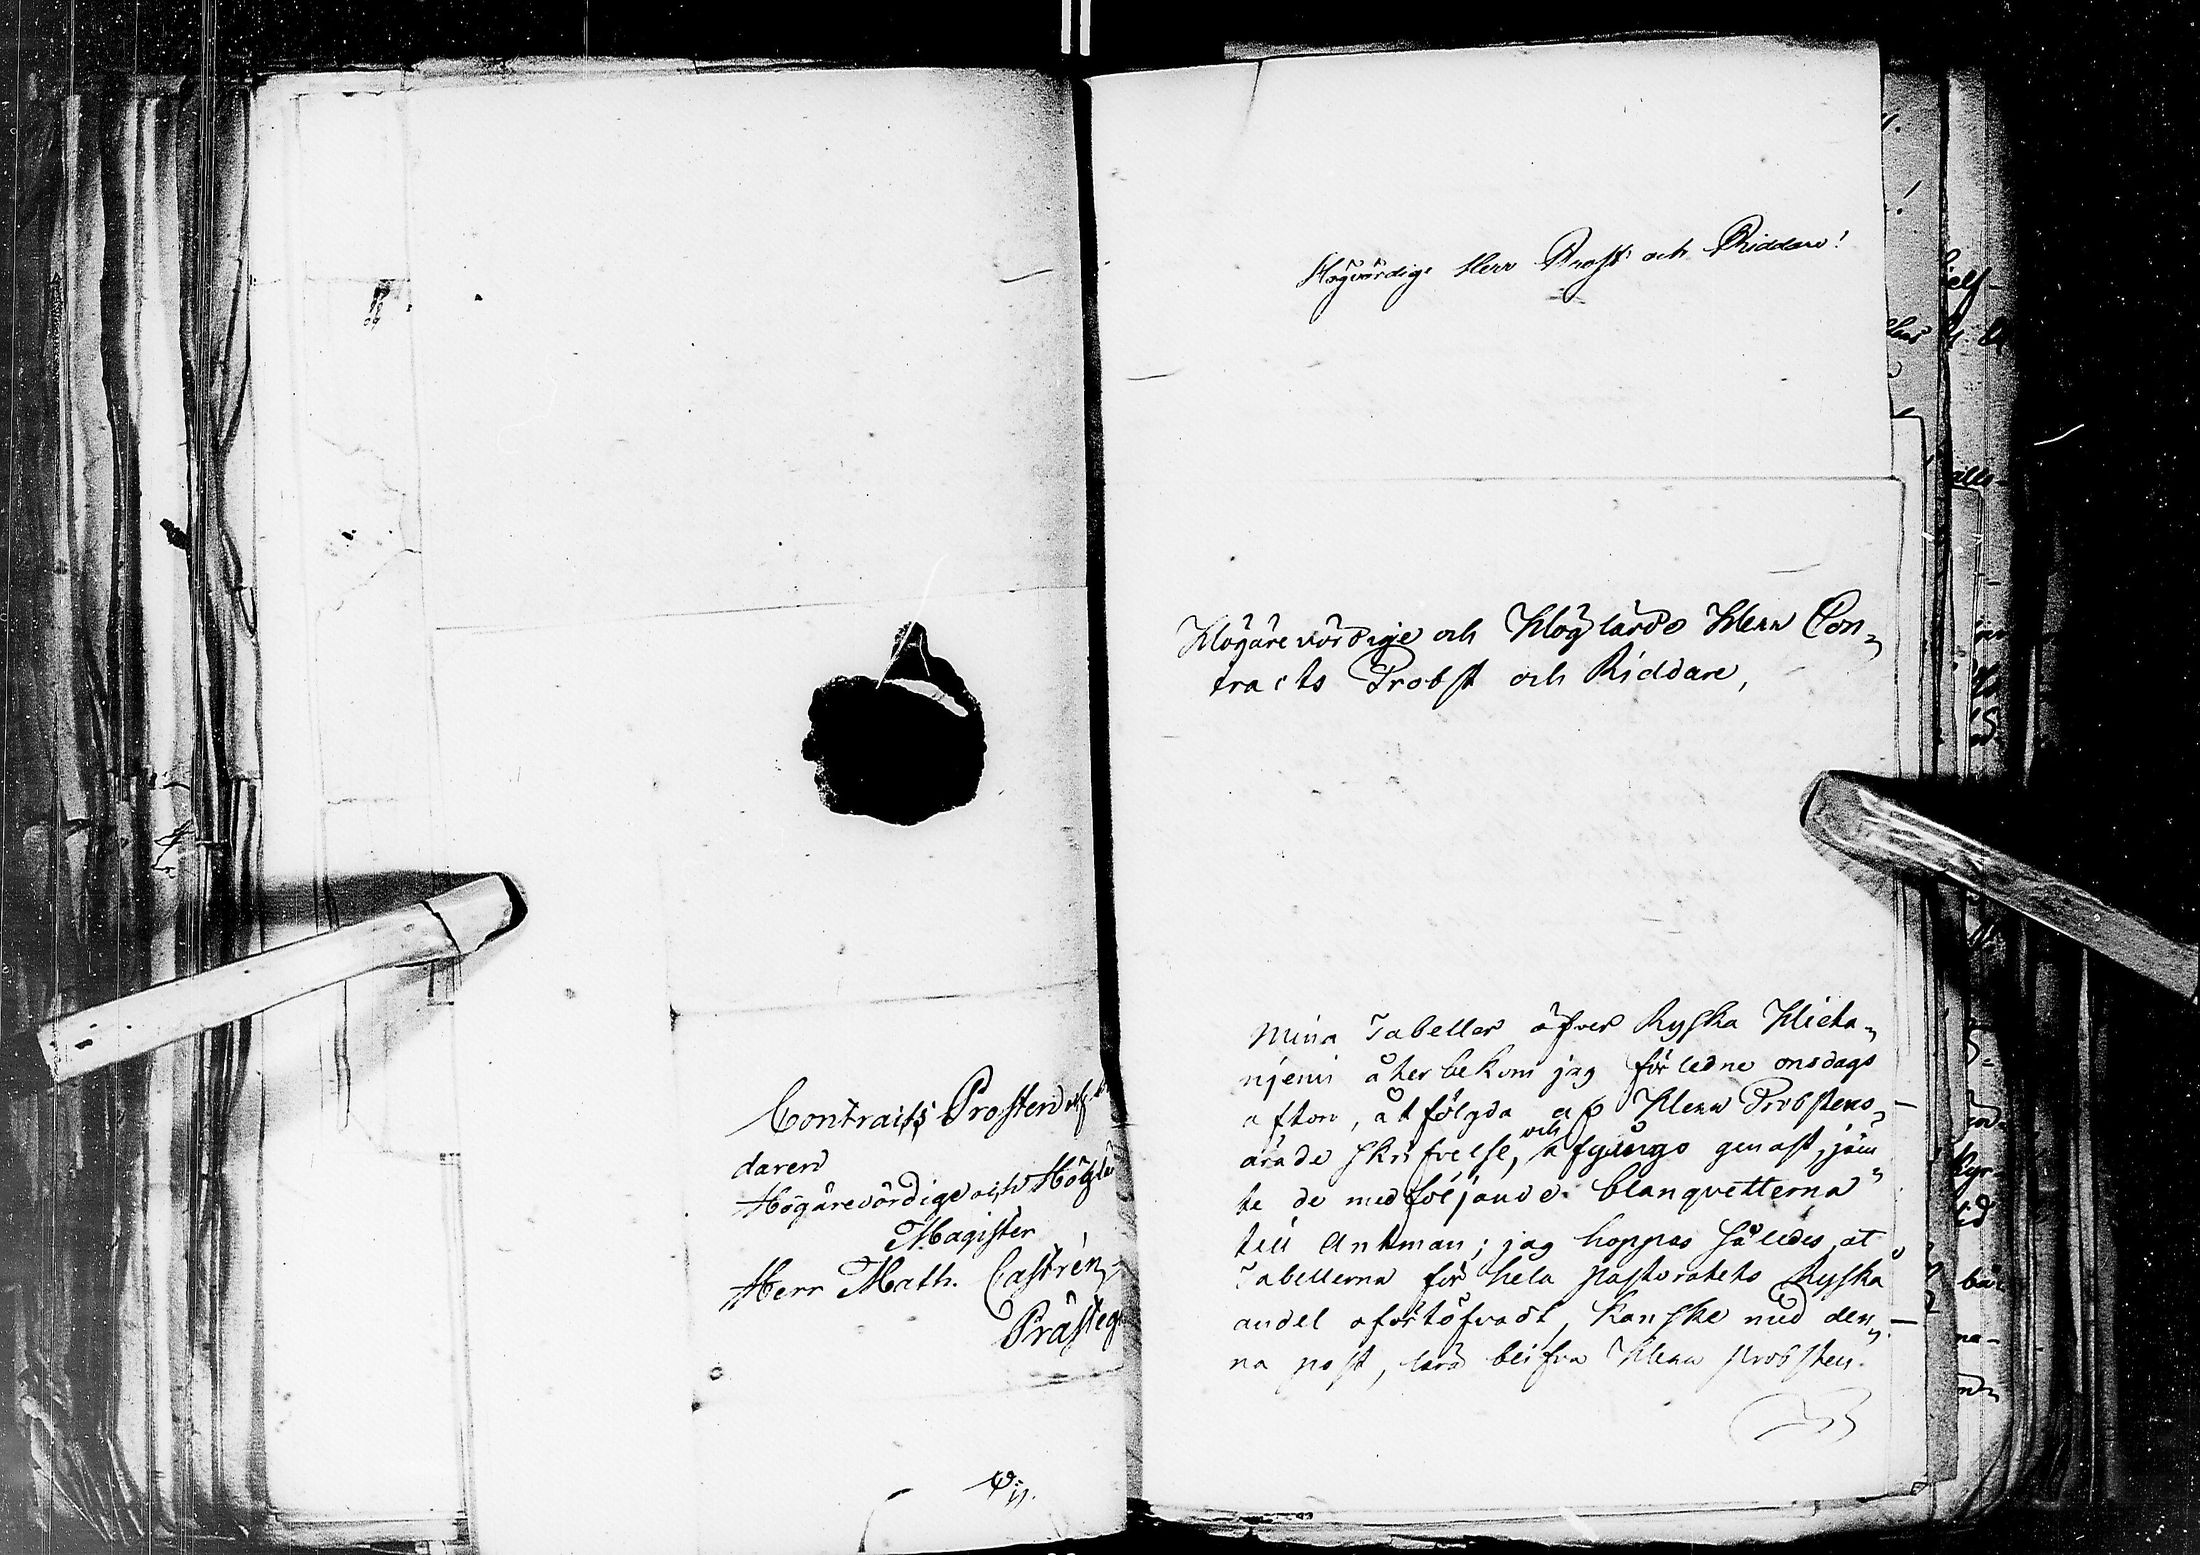 Contracts Prosten och
daren
Högärevördige och Höglär
Magister
Herr Math. Castrén,
Prästeg
Högvördige Herr Prost och Riddare!
Högärevördige och Höglärde Herr Con-
tracts Probst och Riddare,
Mina Tabeller öfver Ryska Hieta-
njemi återbekom jag förledne onsdags
afton, åtföljda af Herr Probstens
ärade skrifvelse, och afgingo genast, jäm
te de medföljande blanqvetterna
till Antman; jag hoppas således, at
Tabellerna för hela pastoratets Ryska
andel ofördtöfvadt, kanske med den-
na post, lära blifva Herr Probsten